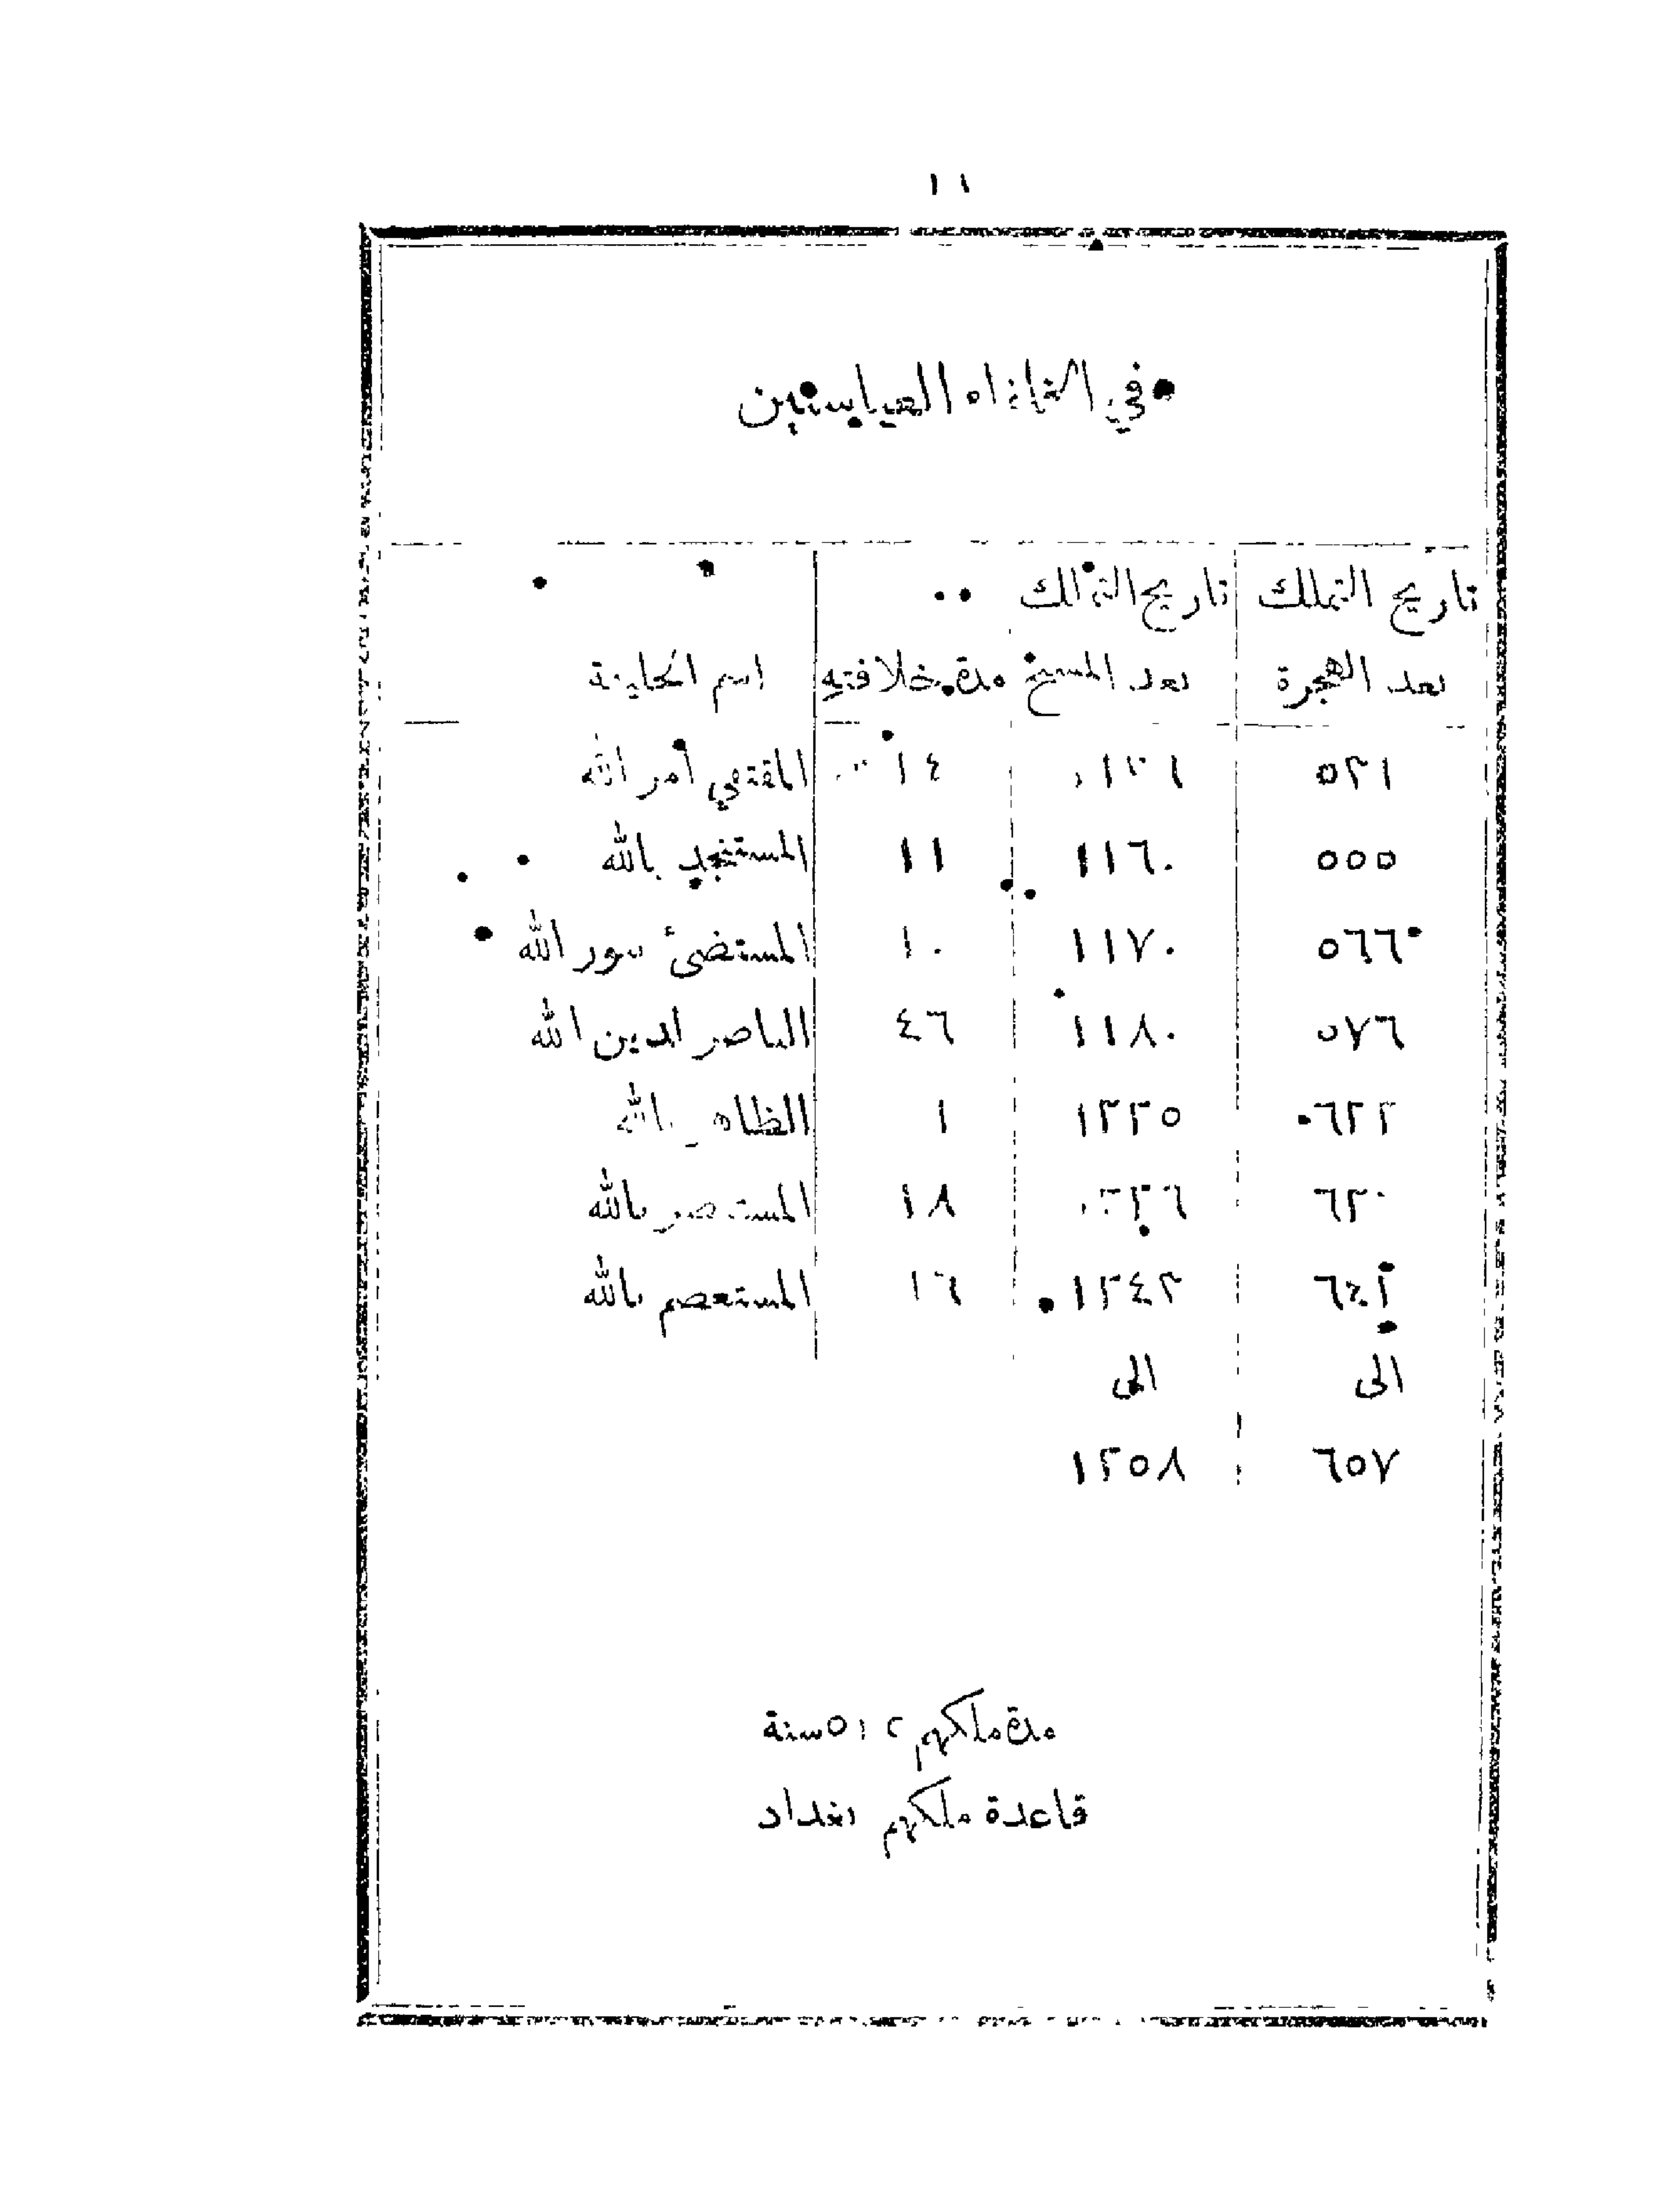 ١١
في الخلفاء العباسيين
تاريخ التملك تاريخ التملك
بعد الهجرة بعد المسيح مدة خلافته اسم الخليفة
٥٢١ ١٤ المقتفي لامر الله
٥٥٥ ١١٦٠ ١١ المستنجد بالله
٥٦٦ ١١٧٠ ١٠ المستضئ بنور الله
٥٧٦ ١١٨٠ ٤٦ الناصر لدين الله
٦٢٢ ١٢٢٥ ١ الظاهر بالله
٦٢٠ ١٨ المستنصر بالله
٦٤٢ ١٢٤٢ ١٦ المستعصم بالله
الى الى
٦٥٧ ١٢٥٨
مدة ملكهم ٥١٢ سنة
قاعدة ملكهم بغداد